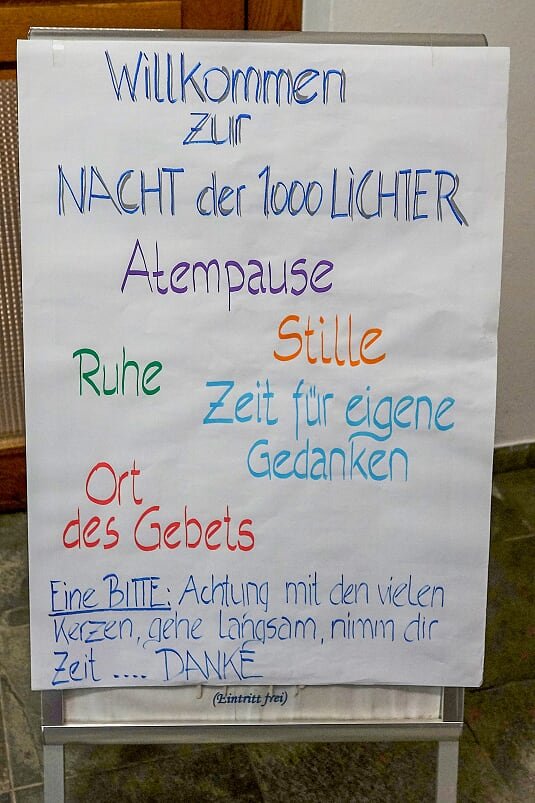 Willkommen
zur
NACHT der 1000 LiCHTER
Atempause
Stille
Ruhe
Zeit für eigene
Gedanken
Ort
des Gebets
Eine BITTE: Achtung mit den vielen
Kerzen, gehe langsam, nimm dir
Zeit .... DANKE
(Eintritt frei)